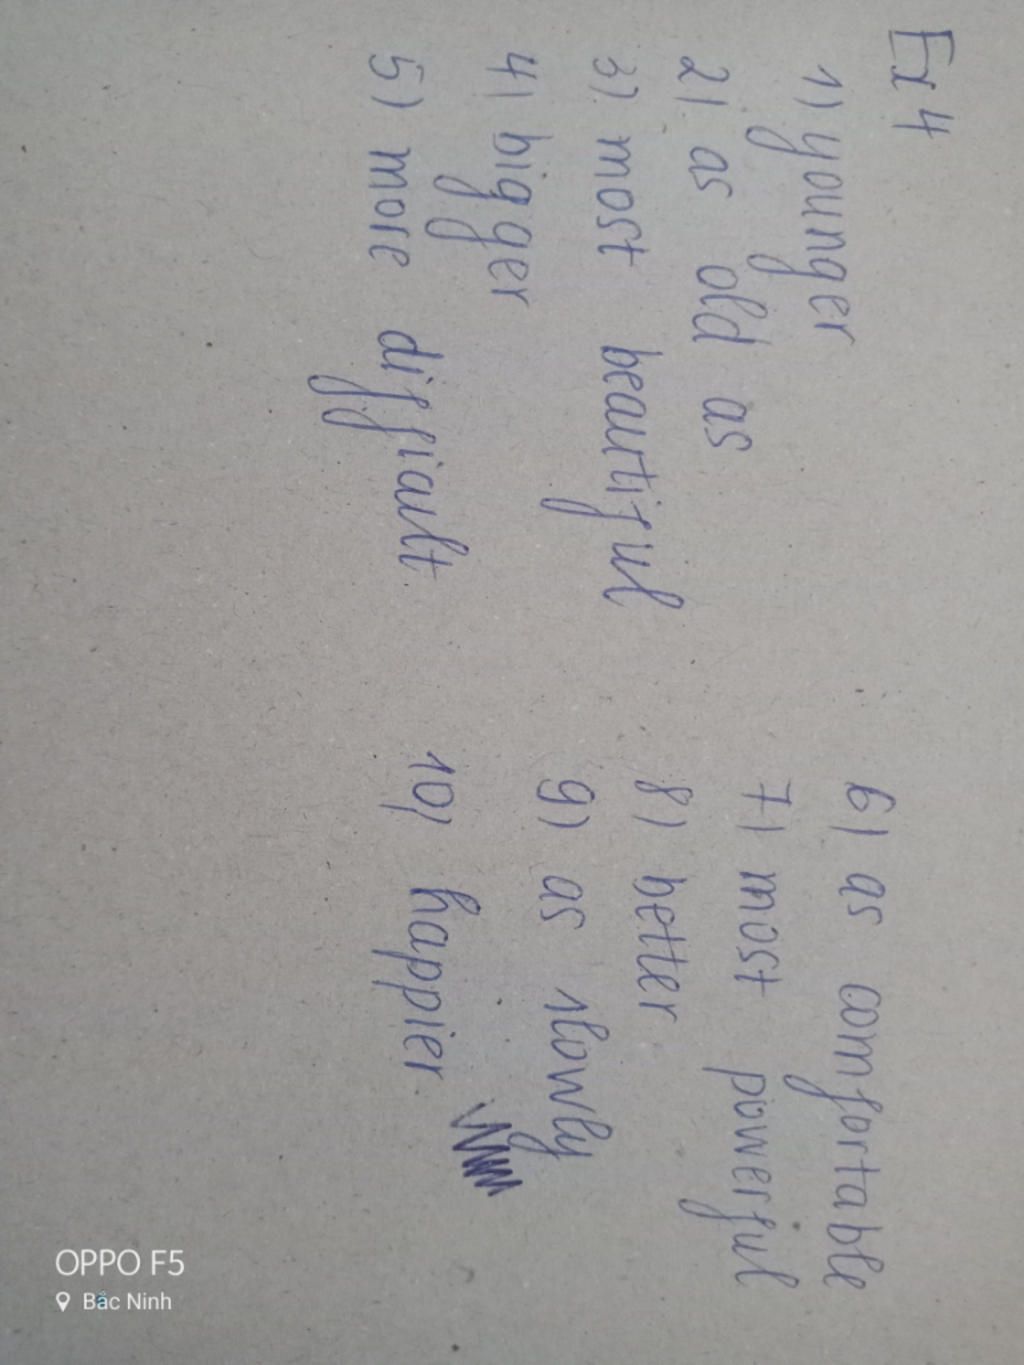 Ex 4
1) younger
2) as old as
3) most beautiful
4) bigger
5) more difficult
6) as comfortable
7) most powerful
8) better
9) as slowly
10) happier
OPPO F5
Bắc Ninh